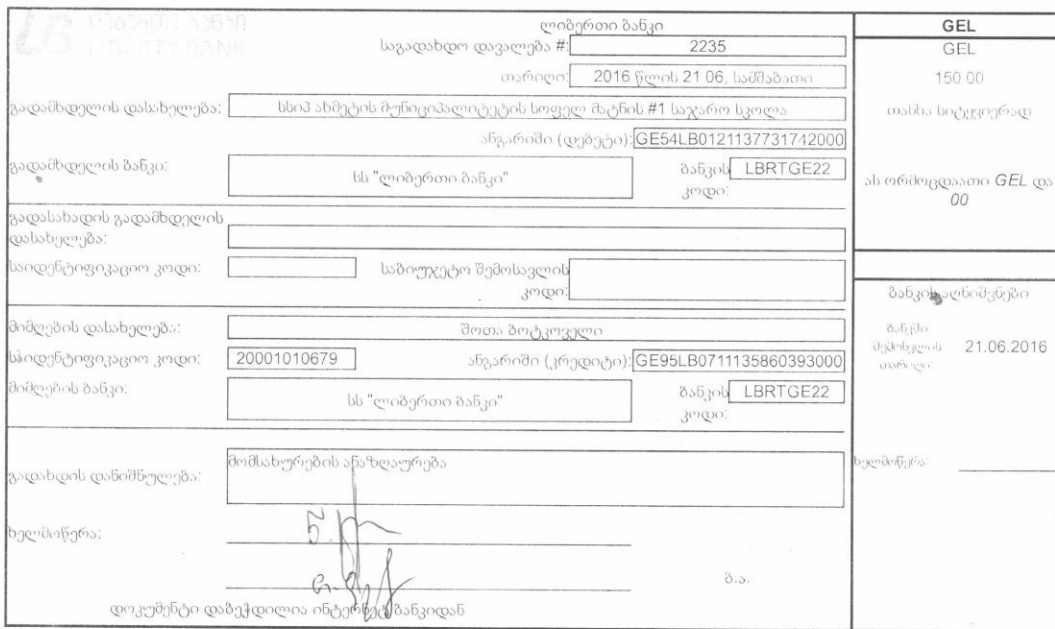 LB ლიბერთი ბანკი
LIBERTY BANK
ლიბერთი ბანკი
საგადახდო დავალება #: 2235
თარიღი: 2016 წლის 21 06, სამშაბათი
გადამხდელის დასახელება: სსიპ ახმეტის მუნიციპალიტეტის სოფელ მატნის #1 საჯარო სკოლა
ანგარიში (დებეტი): GE54LB0121137731742000
გადამხდელის ბანკი: სს "ლიბერთი ბანკი" ბანკის კოდი: LBRTGE22
გადასახადის გადამხდელის
დასახელება:
საიდენტიფიკაციო კოდი: საბიუჯეტო შემოსავლის
კოდი:
მიმღების დასახელება: შოთა ბოტკოველი
საიდენტიფიკაციო კოდი: 20001010679 ანგარიში (კრედიტი): GE95LB0711135860393000
მიმღების ბანკი: სს "ლიბერთი ბანკი" ბანკის კოდი: LBRTGE22
გადახდის დანიშნულება: მომსახურების ანაზღაურება
ხელმოწერა:
ბ.ა.
დოკუმენტი დაბეჭდილია ინტერნეტ ბანკიდან
GEL
GEL
150 00
თანხა სიტყვიერად
ას ორმოცდაათი GEL და
00
ბანკის აღნიშვნები
ბანკში
შემოსვლის 21.06.2016
თარიღი:
ხელმოწერა: